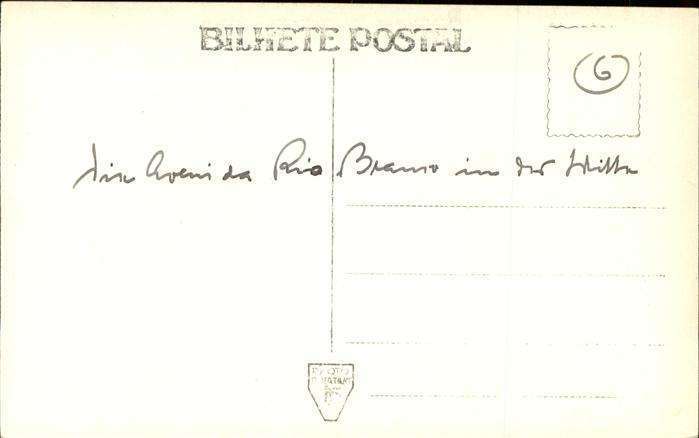 BILHETE POSTAL
6
die Avenida Rio Branco in der Mitte